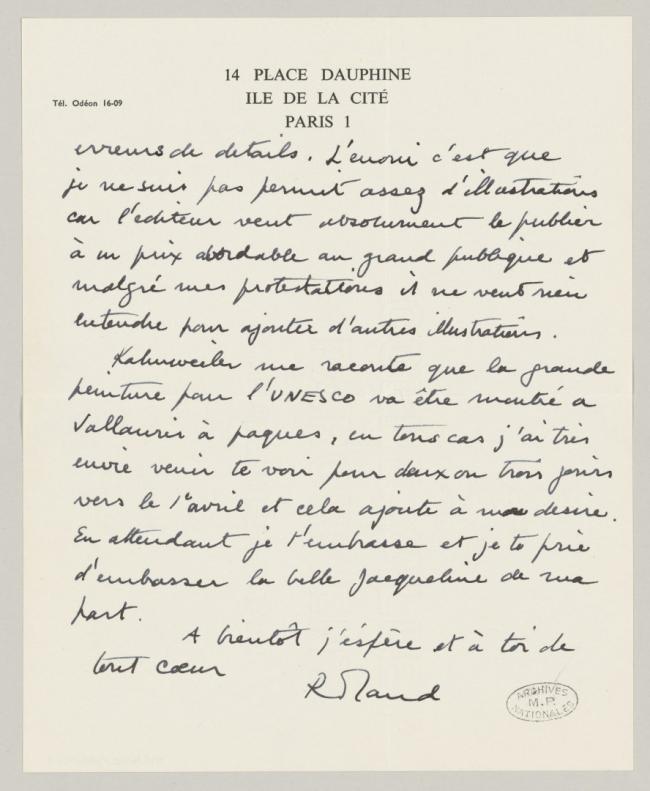 14 PLACE DAUPHINE
Tél. Odéon 16-09
ILE DE LA CITÉ
PARIS 1
erreurs de details. L'ennui c'est que
je ne suis pas permit assez d'illustrations
car l'editeur veut absolument le publier
à un prix abordable au grand publique et
malgré mes protestations il ne veut rien
entendre pour ajouter d'autres illustrations.
Kahnweiler me raconte que la grande
peinture pour l'UNESCO va être montré a
Vallauris à paques, en tous cas j'ai très
envie venir te voir pour deux ou trois jours
vers le 1er avril et cela ajoute à mon desire.
En attendant je t'embrasse et je te prie
d'embasser la belle Jacqueline de ma
part.
A bientôt j'éspère et à toi de
tout cœur
Roland
ARCHIVES
M.P.
NATIONALES